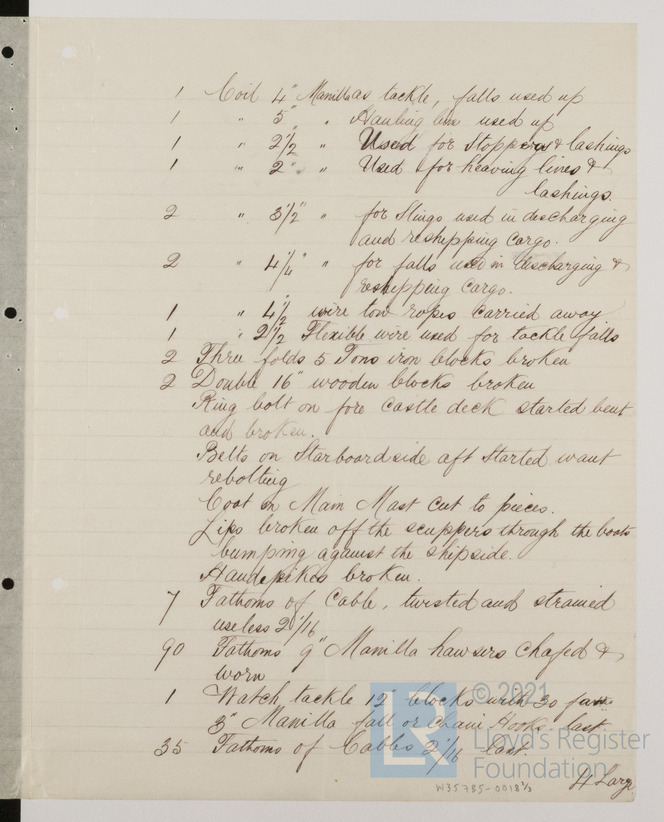 1 Coil 4" Manilla as tackle, falls used up
1 " 5" " Hauling line used up
1 " 2 1/2 " Used for Stoppers & lashings
1 " 2" " Used for heaving lines &
lashings.
2 " 3 1/2" " for Slings used in discharging
and reshipping cargo.
2 " 4 1/4" " for falls used in discharging &
reshipping cargo.
1 " 4 1/2 wire tow ropes carried away
1 " 2 1/2 Flexible wire used for tackle falls
2 Three folds 5 Tons iron blocks broken
2 Double 16" wooden blocks broken
Ring bolt on fore castle deck started bent
and broken.
Belts on Starboard side aft Started want
rebolting
Coat on Main Mast cut to pieces.
Lips broken off the scuppers through the boats
bumping against the shipside.
Handspikes broken.
7 Fathoms of Cable, twisted and strained
useless 2 1/16
90 Fathoms 9" Manilla hawsers chafed &
worn
1 Watch tackle 12" blocks with 30
3" Manilla fall or Chain Hooks lost
35 Fathoms of Cables 2 1/16 lost.
© 2021
LR
Lloyd's Register
Foundation
W35785-0018 1/3